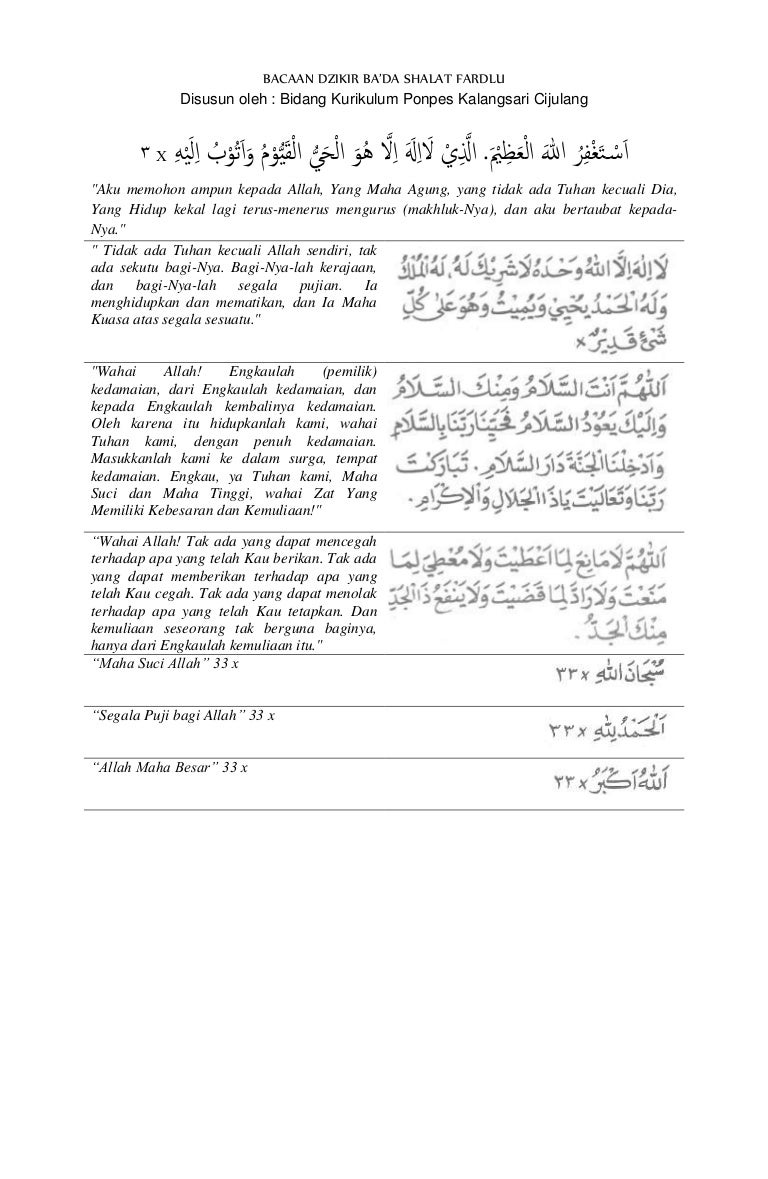 BACAAN DZIKIR BA'DA SHALAT FARDLU
Disusun oleh : Bidang Kurikulum Ponpes Kalangsari Cijulang
اَسْتَغْفِرُ اللهَ الْعَظِيْمَ. الَّذِيْ لَااِلَهَ اِلَّا هُوَ الْحَيُّ الْقَيُّوْمُ وَاَتُوْبُ اِلَيْهِ x ٣
"Aku memohon ampun kepada Allah, Yang Maha Agung, yang tidak ada Tuhan kecuali Dia,
Yang Hidup kekal lagi terus-menerus mengurus (makhluk-Nya), dan aku bertaubat kepada-
Nya."
" Tidak ada Tuhan kecuali Allah sendiri, tak
ada sekutu bagi-Nya. Bagi-Nya-lah kerajaan,
dan bagi-Nya-lah segala pujian. Ia
menghidupkan dan mematikan, dan Ia Maha
Kuasa atas segala sesuatu."
لَا اِلٰهَ اِلَّا اللهُ وَحْدَهُ لَاشَرِيْكَ لَهُ، لَهُ الْمُلْكُ
وَلَهُ الْحَمْدُ يُحْيِيْ وَيُمِيْتُ وَهُوَ عَلٰى كُلِّ
شَيْءٍ قَدِيْرٌ x
"Wahai Allah! Engkaulah (pemilik)
kedamaian, dari Engkaulah kedamaian, dan
kepada Engkaulah kembalinya kedamaian.
Oleh karena itu hidupkanlah kami, wahai
Tuhan kami, dengan penuh kedamaian.
Masukkanlah kami ke dalam surga, tempat
kedamaian. Engkau, ya Tuhan kami, Maha
Suci dan Maha Tinggi, wahai Zat Yang
Memiliki Kebesaran dan Kemuliaan!"
اَللّٰهُمَّ اَنْتَ السَّلَامُ وَمِنْكَ السَّلَامُ
وَاِلَيْكَ يَعُوْدُ السَّلَامُ فَحَيِّنَا رَبَّنَا بِالسَّلَامِ
وَاَدْخِلْنَا الْجَنَّةَ دَارَ السَّلَامِ. تَبَارَكْتَ
رَبَّنَا وَتَعَالَيْتَ يَاذَا الْجَلَالِ وَالْاِكْرَامِ.
“Wahai Allah! Tak ada yang dapat mencegah
terhadap apa yang telah Kau berikan. Tak ada
yang dapat memberikan terhadap apa yang
telah Kau cegah. Tak ada yang dapat menolak
terhadap apa yang telah Kau tetapkan. Dan
kemuliaan seseorang tak berguna baginya,
hanya dari Engkaulah kemuliaan itu."
اَللّٰهُمَّ لَامَانِعَ لِمَا اَعْطَيْتَ وَلَا مُعْطِيَ لِمَا
مَنَعْتَ وَلَا رَادَّ لِمَا قَضَيْتَ وَلَا يَنْفَعُ ذَا الْجَدِّ
مِنْكَ الْجَدُّ.
“Maha Suci Allah” 33 x
سُبْحَانَ اللهِ x ٣٣
“Segala Puji bagi Allah” 33 x
اَلْحَمْدُ لِلّٰهِ x ٣٣
“Allah Maha Besar” 33 x
اَللهُ اَكْبَرُ x ٣٣